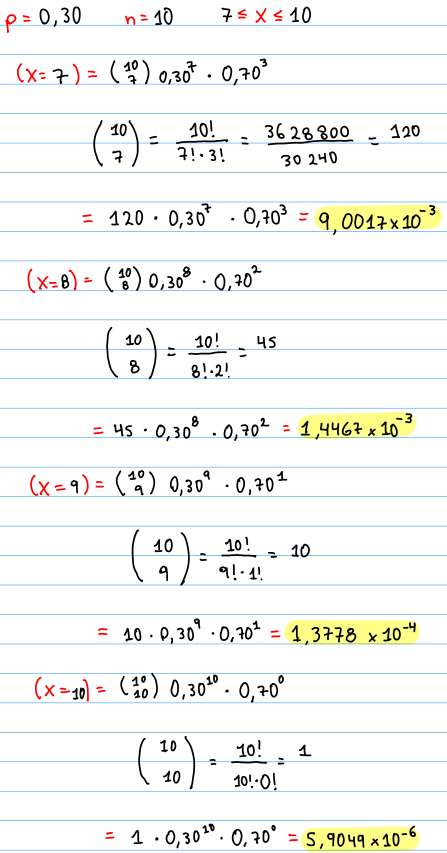 p = 0,30 n = 10 7 ≤ x ≤ 10
(x = 7) = (10 7) 0,30⁷ · 0,70³
(10 7) = 10! / 7! · 3! = 3628800 / 30240 = 120
= 120 · 0,30⁷ · 0,70³ = 9,0017x10⁻³
(x=8) = (10 8) 0,30⁸ · 0,70²
(10 8) = 10! / 8! · 2! = 45
= 45 · 0,30⁸ · 0,70² = 1,4467 x 10⁻³
(x = 9) = (10 9) 0,30⁹ · 0,70¹
(10 9) = 10! / 9! · 1! = 10
= 10 · 0,30⁹ · 0,70¹ = 1,3778 x 10⁻⁴
(x = 10) = (10 10) 0,30¹⁰ · 0,70⁰
(10 10) = 10! / 10! · 0! = 1
= 1 · 0,30¹⁰ · 0,70⁰ = 5,9049 x 10⁻⁶